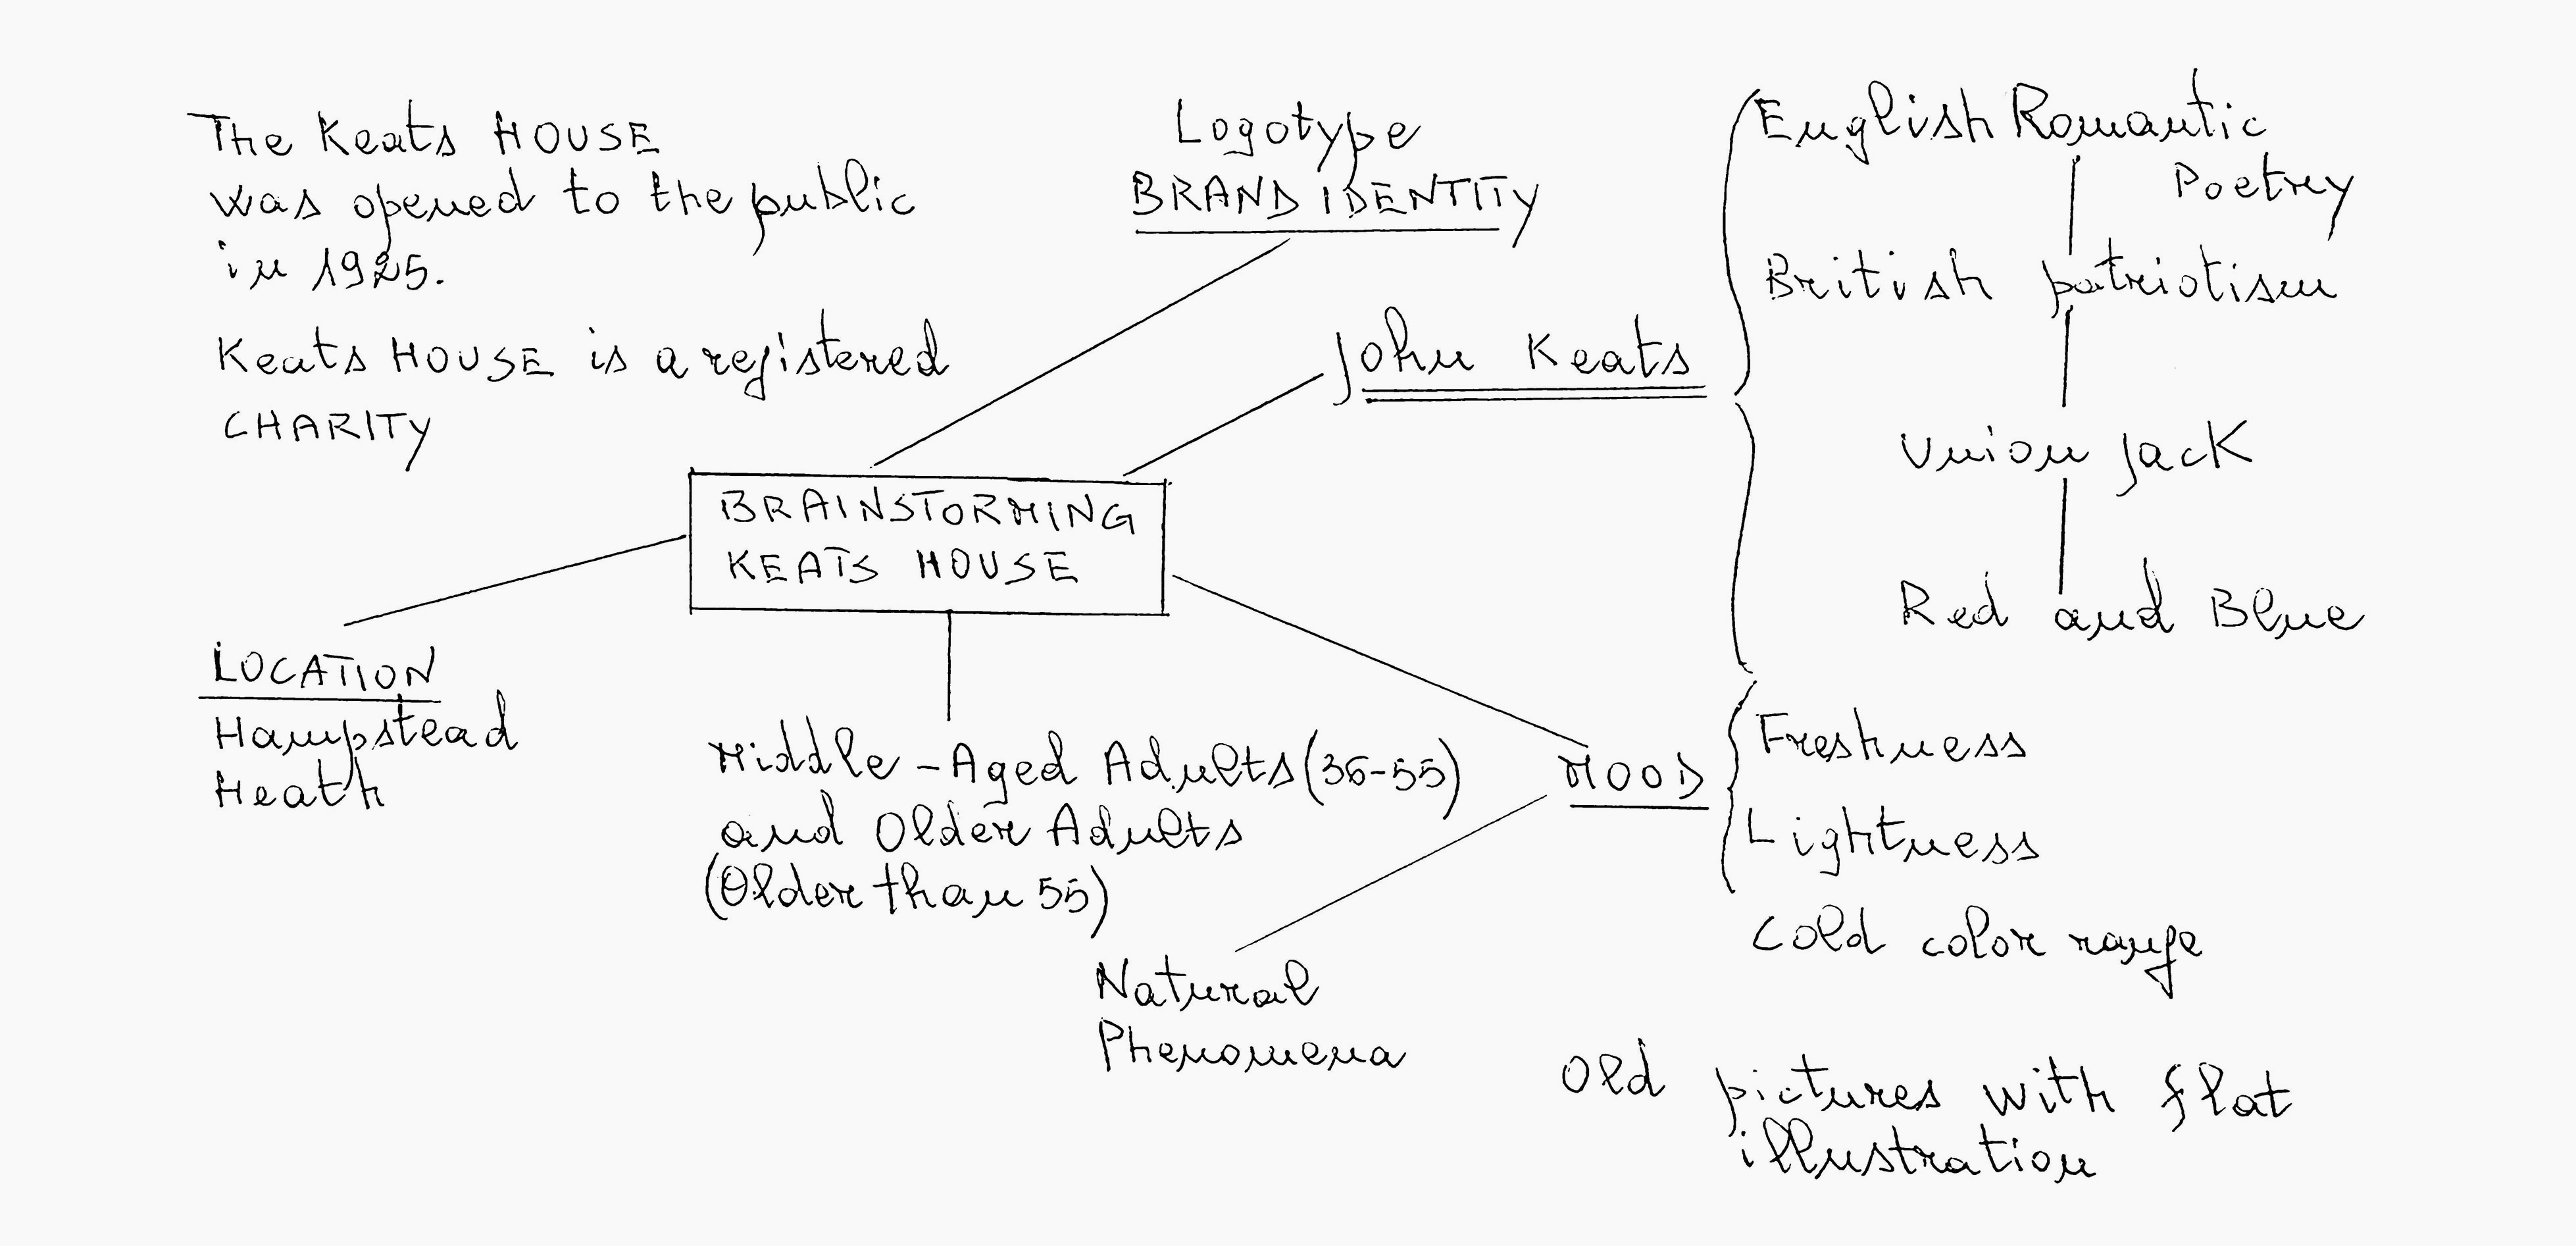 The Keats HOUSE
was opened to the public
in 1925.
Keats HOUSE is a registered
CHARITY
Logotype
BRAND IDENTITY
John Keats
English Romantic
Poetry
British patriotism
Union Jack
Red and Blue
BRAINSTORMING
KEATS HOUSE
LOCATION
Hampstead
Heath
Middle-Aged Adults (36-55)
and Older Adults
(Older than 55)
MOOD
Freshness
Lightness
Cold color range
Natural
Phenomena
Old pictures with flat
illustration